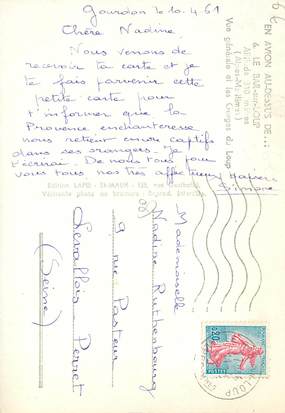 Gourdon le 10.4.61
Chère Nadine
Nous venons de
recevoir ta carte et je
te fais parvenir cette
petite carte pour
t'informer que la
Provence enchanteresse
nous retient encore captifs
dans ses orangers. Je
écrirai. De nous tous pour
vous tous nos très affectueux
Simone
EN AVION AU-DESSUS DE...
6. LE BAR-SUR-LOUP
Alt. de 310 mètres
(Alpes-Mmes)
Vue générale et les Gorges du Loup
Edition LAPIE - ST-MAUR
Véritable photo au bromure
Mademoiselle
Nadine Ruthenbourg
9 rue Pasteur
Levallois Perret
(Seine)
0,20
POSTES
LOUP